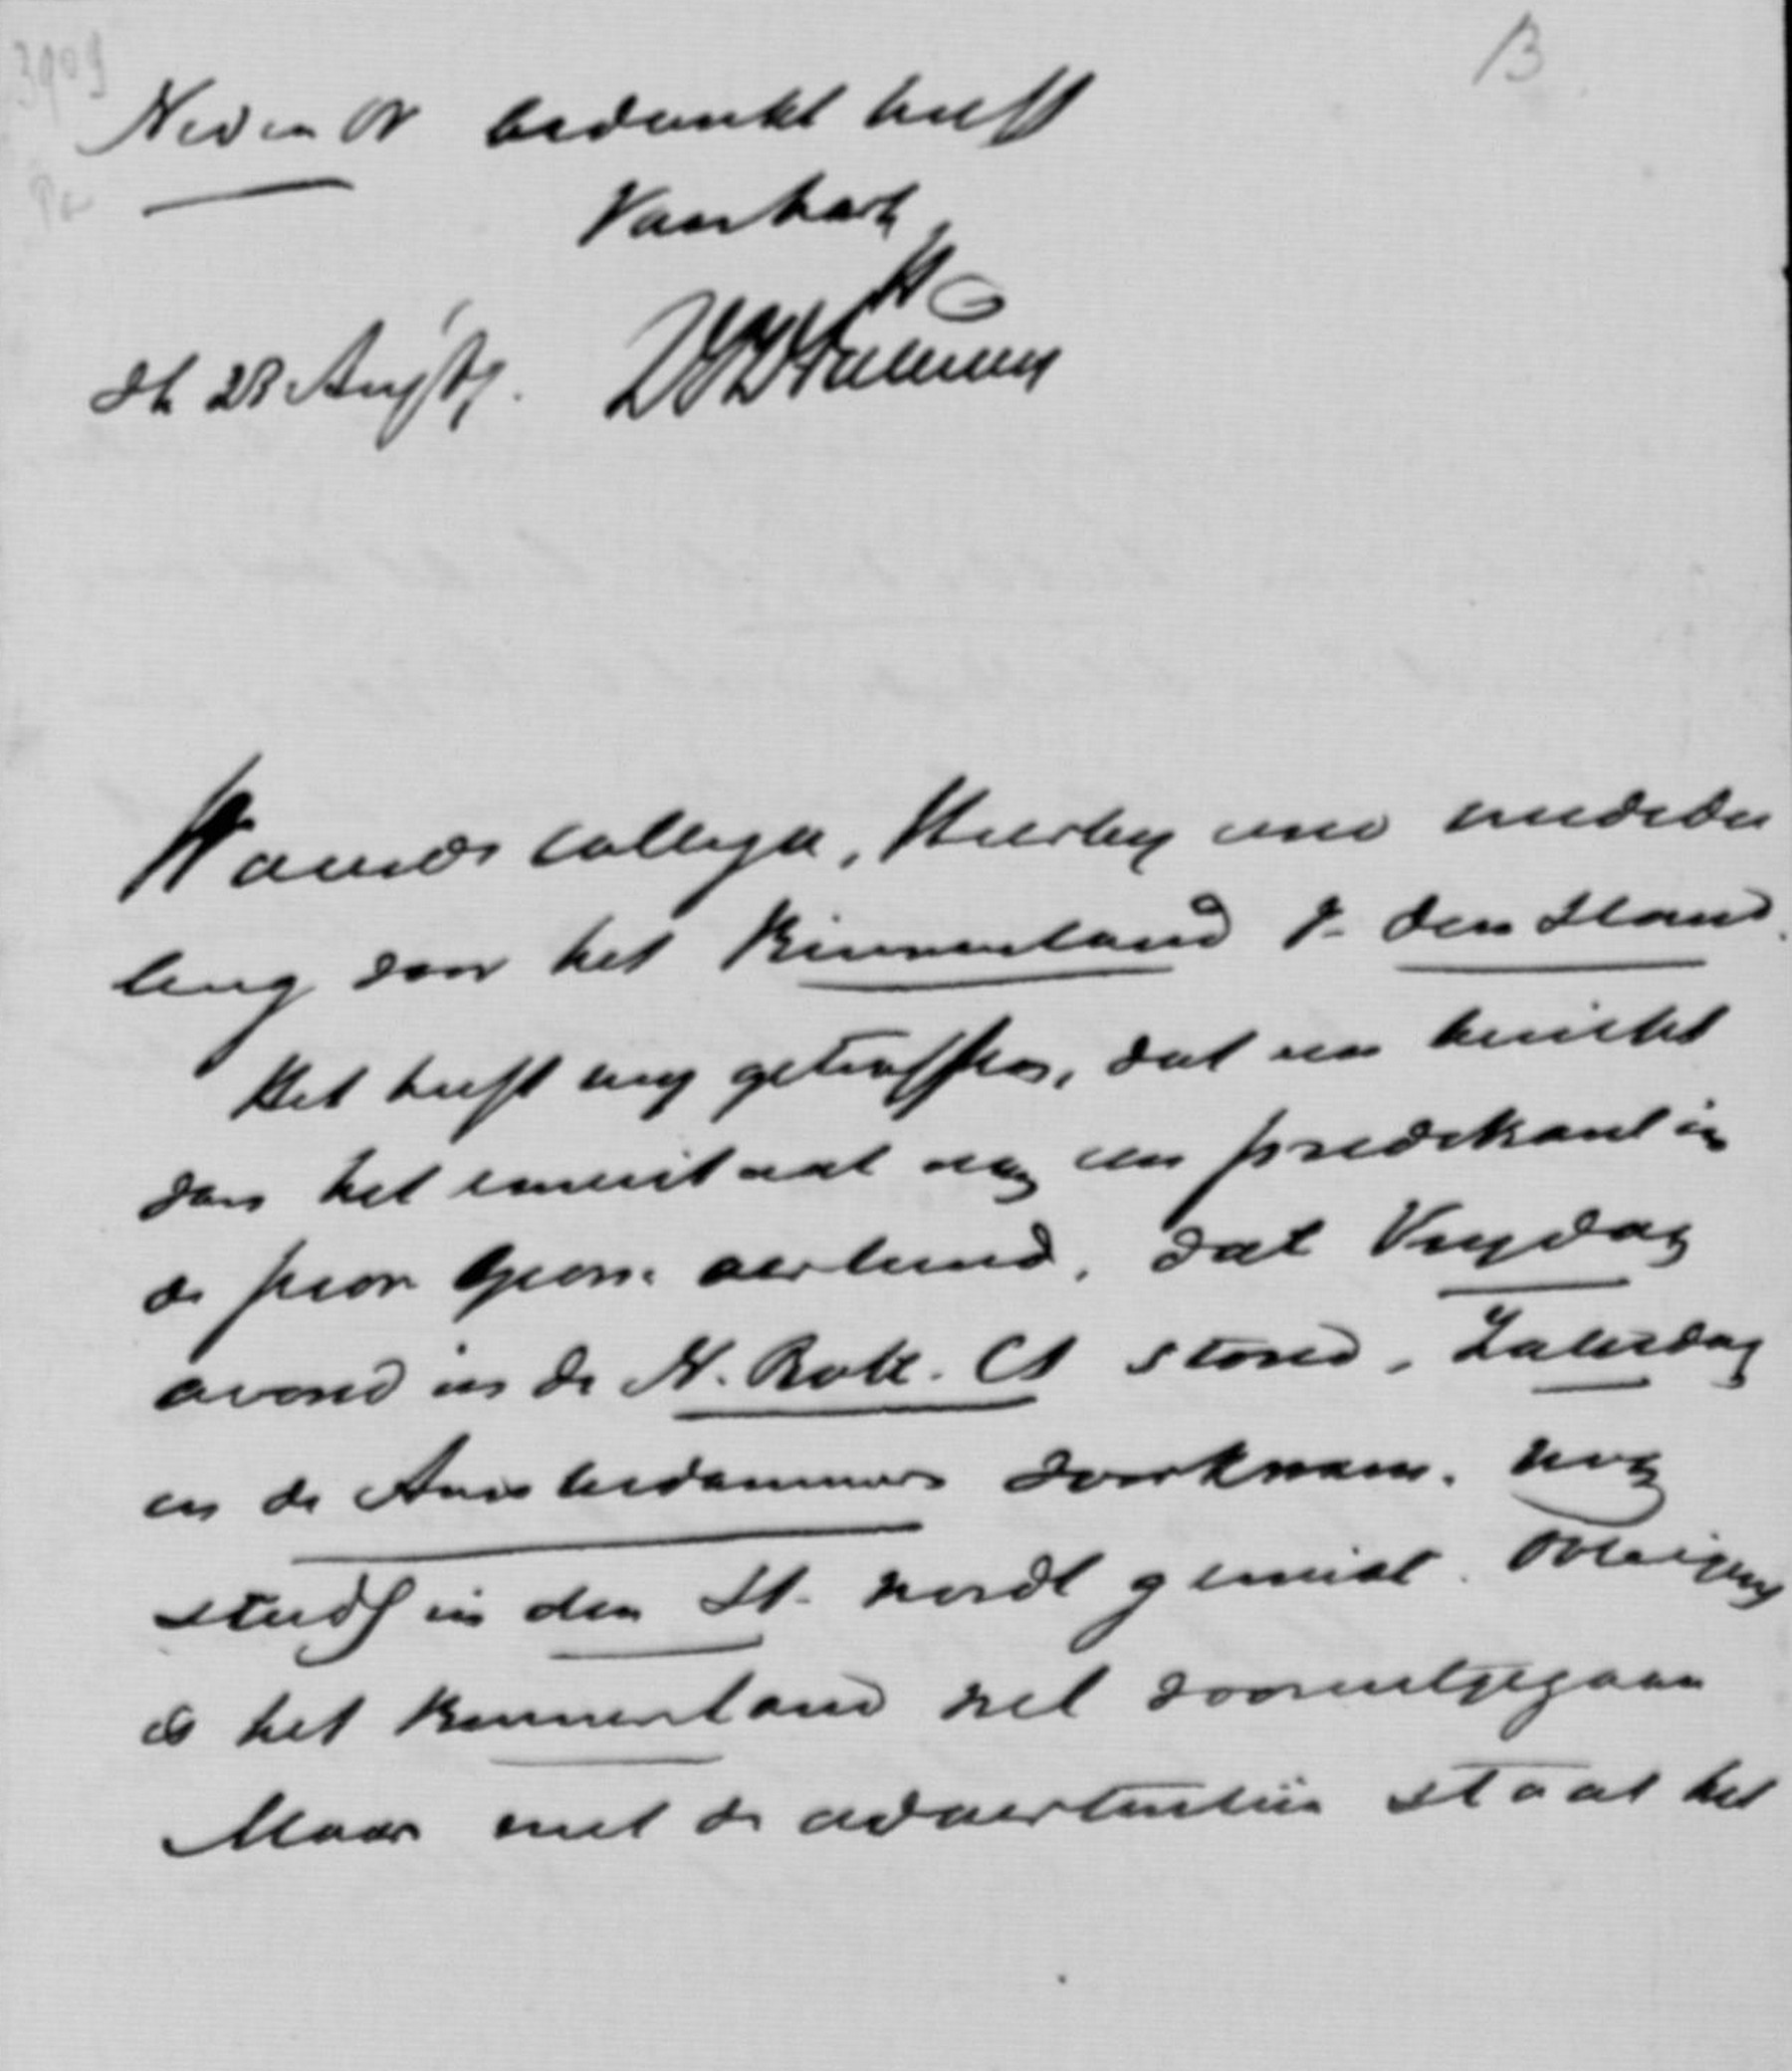 3909
B
bedankt heeft
28 Aug
Waarde Collega, Hierbij een mededee
ling voor het Binnenland v. den Stand.
Het heeft mij getroffen, dat een bericht
van het emeritaat van een predikant in
de prov. Gron. verleend, dat Vrijdag
avond in de N. Rott. Ct stond, Zaterdag
in de Amsterdammer voorkwam, nog
steeds in den St. wordt gemist. Overigens
is het Binnenland wel vooruitgegaan
Maar met de advertentiën staat het